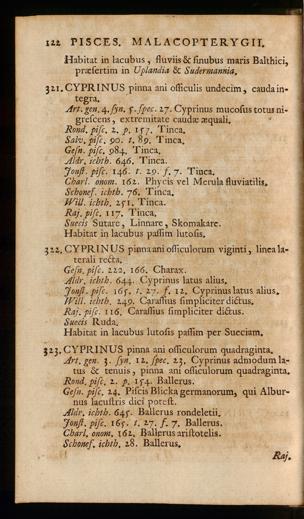 122 PISCES. MALACOPTERYGII.
Habitat in lacubus, fluviis & sinubus maris Balthici,
præsertim in Uplandia & Sudermannia.
321. CYPRINUS pinna ani officulis undecim, cauda in-
tegra.
Art. gen. 4. syn. 5. spec. 27. Cyprinus mucosus totus ni-
grescens, extremitate caudæ æquali.
Rond. pisc. 2. p. 157. Tinca.
Salv. pisc. 90. t. 89. Tinca.
Gesn. pisc. 984. Tinca.
Aldr. ichth. 646. Tinca.
Jonst. pisc. 146. t. 29. f. 7. Tinca.
Charl. onom. 162. Phycis vel Merula fluviatilis.
Schonef. ichth. 76. Tinca.
Will. ichth. 251. Tinca.
Raj. pisc. 117. Tinca.
Suecis Sutare, Linnare, Skomakare.
Habitat in lacubus passim lutosis.
322. CYPRINUS pinna ani ossiculorum viginti, linea la-
terali recta.
Gesn. pisc. 222, 166. Charax.
Aldr. ichth. 644. Cyprinus latus alius.
Jonst. pisc. 165. t. 27. f. 12. Cyprinus latus alius.
Will. ichth. 249. Carassius simpliciter dictus.
Raj. pisc. 116. Carassius simpliciter dictus.
Suecis Ruda.
Habitat in lacubus lutosis passim per Sueciam.
323. CYPRINUS pinna ani ossiculorum quadraginta.
Art. gen. 3. syn. 12. spec. 23. Cyprinus admodum la-
tus & tenuis, pinna ani ossiculorum quadraginta.
Rond. pisc. 2. p. 154. Ballerus.
Gesn. pisc. 24. Piscis Blicka germanorum, qui Albur-
nus lacustris dici potest.
Aldr. ichth. 645. Ballerus rondeletii.
Jonst. pisc. 165. t. 27. f. 7. Ballerus.
Charl. onom. 162. Ballerus aristotelis.
Schonef. ichth. 28. Ballerus.
Raj.